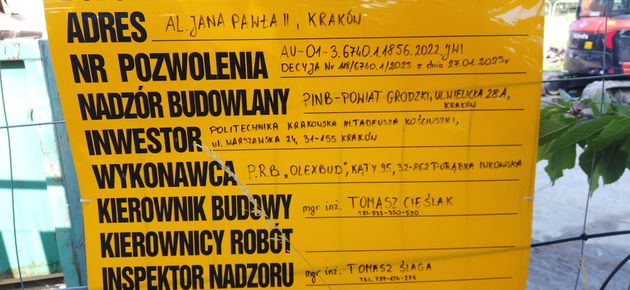 ADRES AL. JANA PAWŁA II, KRAKÓW
NR POZWOLENIA AU-01-3.6740.1.1856.2022.JNI
DECYZJA Nr 118/6740.1/2023 z dnia 27.01.2023r
NADZÓR BUDOWLANY PINB-POWIAT GRODZKI, UL. WIELICKA 28A,
KRAKÓW
INWESTOR POLITECHNIKA KRAKOWSKA IM. TADEUSZA KOŚCIUSZKI,
ul. WARSZAWSKA 24, 31-155 KRAKÓW
WYKONAWCA P.R.B. „OLEXBUD", KĄTY 95, 32-862 PORĄBKA IWKOWSKA
KIEROWNIK BUDOWY mgr inż. TOMASZ CIEŚLAK
TEL. 533-330-550
KIEROWNICY ROBÓT
INSPEKTOR NADZORU mgr inż. TOMASZ ŚLAGA
TEL.